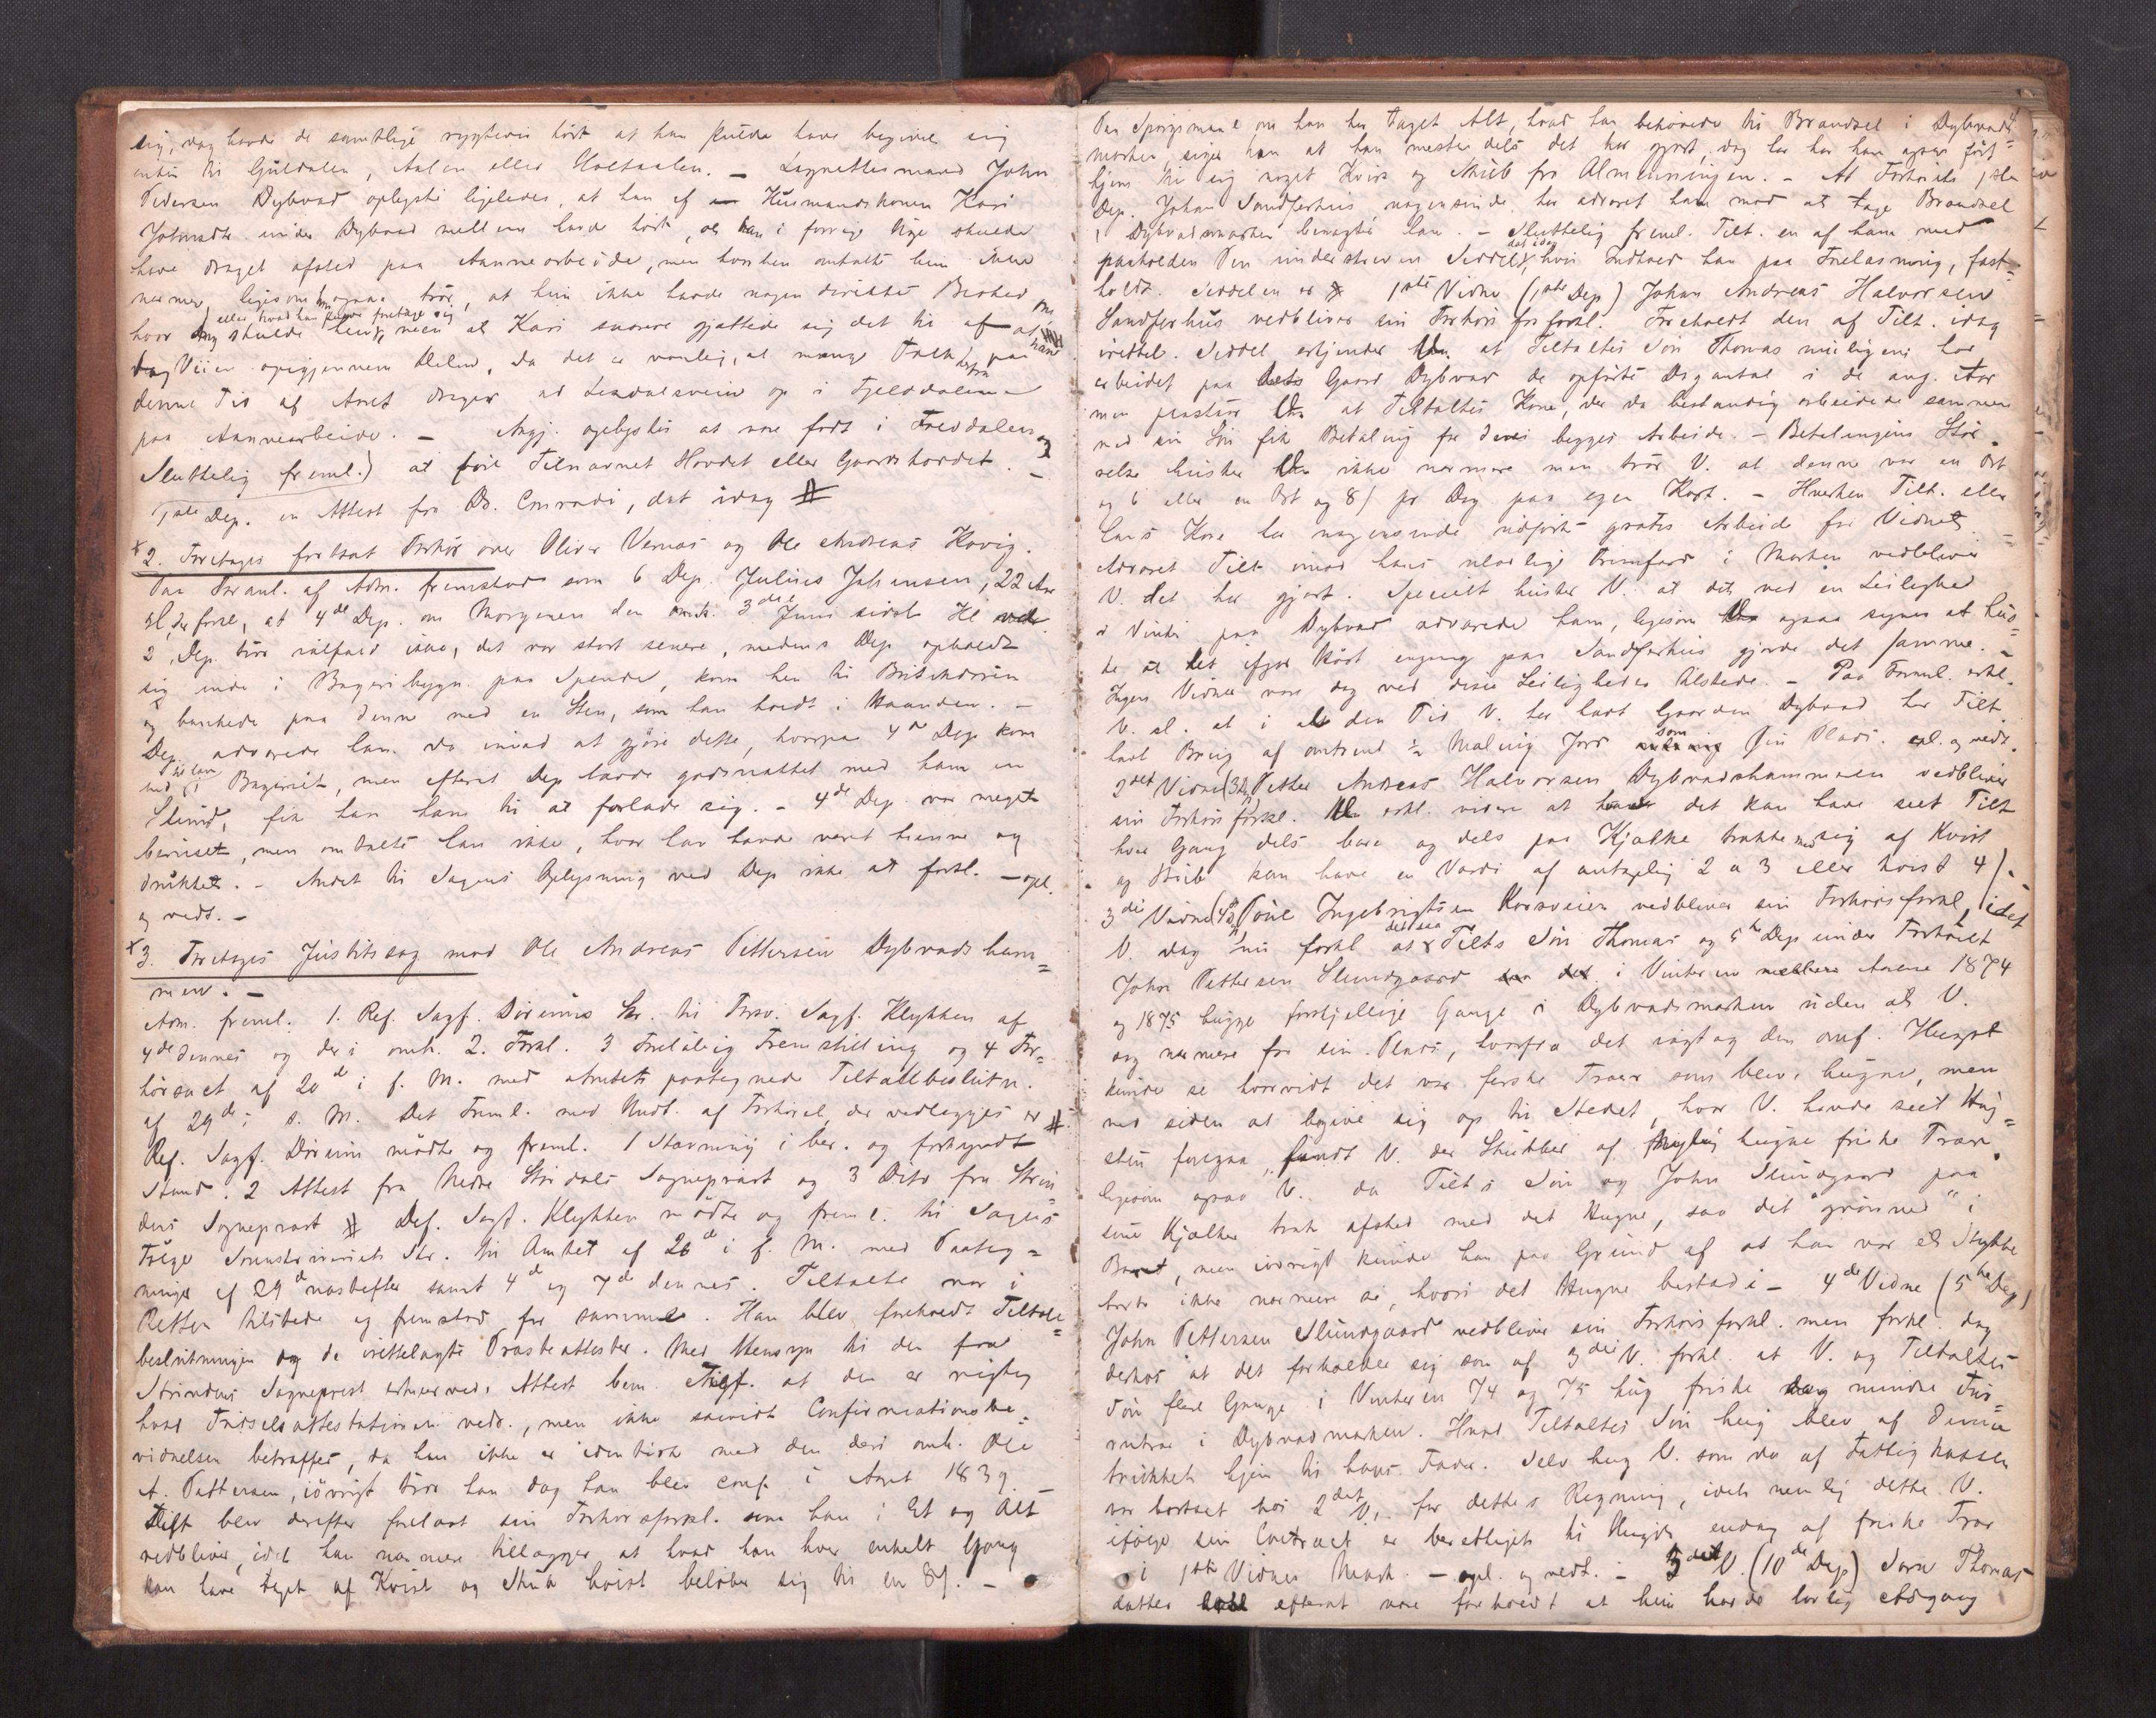 sig, dog havde de samtlige rygtevis hört at han skulde have begivet sig
enten til Guldalen, Aalen eller Holtaalen. — Lagrettesmand John
Pedersen Dybvad oplyste ligeledes, at han af Husmandskonen Kari
Johnsdtr. under Dybvad mellem havde hört, at han i forrige Uge skulde
have draget afsted paa Aannearbeide, men hvorhen omtalte hun ikke
nærmere, ligesom han ogsaa tror, at hun ikke havde nogen direkte Besked om
hvor han skulde hen, eller hvad han skulde foretage sig, men at Kari snarere gjættede sig det til af at han
tog Veien opigjennem Dalen, da det er vanlig, at mange Folk herfra paa
denne Tid af Aaret drager ad Lexdalsveien op i Fjelddalene
paa Aannearbeide. — Angj. oplystes at være født i Fredalen og
at føre Tilnavnet Hovdet eller Gaardshovdet. —
Sluttelig freml. 1ste Dep. en Attest fra Dr. Conradi, dat. idag #
2. Foretages fortsat Forhör over Oliver Vernæs og Ole Andreas Hovig.
Paa Foranl. af Adm. fremstod som 6 Dep. Julius Johansen, 22 Aar
gl, der forkl, at 4de Dep. om Morgenen den omh. 3die Juni sidst Kl
2, Dep. tror ialfald ikke, det var stort senere, medens Dep. opholdt
sig inde i Bageribygn. paa Spendet, kom hen til Britindören
og bankede paa denne med en Sten, som han holdt i Haanden. —
Dep. advarede ham da imod at gjöre dette, hvorpaa 4de Dep. kom
ind til ham i Bageriet, men efterat Dep. havde godsnakket med ham en
Stund, fik han ham til at forlade sig. — 4de Dep. var meget
beruset, men omtalte han ikke, hvor han havde været henne og
drukket. — Andet til Sagens Oplysning ved Dep. ikke at forkl. — opl.
og vedt. —
3. Foretages Justitssag mod Ole Andreas Pettersen Dybvadsham=
meren. —
Adm. freml. 1. Ref. Sagf. Dörums Skr. til Forsv. Sagf. Klykken af
4de dennes og deri omh. 2. Forkl. 3 Foreløbig Fremstilling og 4 For=
hörsact af 20de i f. M. med Amtets paategnede Tiltalebeslutn.
af 29de i s. M. Det Freml. med Undt. af Forhöret, der vedlægges er #
Ref. Sagf. Dörum mödte og freml. 1 Stævning i ber. og forkyndt
Stand. 2 Attest fra Nedre Stördals Sogneprest og 3 Dito fra Strin=
dens Sogneprest # Def. Sagf. Klykken mödte og freml. til Sagens
Følge Skr. til Amtet af 26de i f. M. med Paateg=
ninger af 29de næstefter samt 4de og 7de dennes. Tiltalte var i
Retten tilstede og fremstod for samme. Han blev foreholdt Tiltale=
beslutningen og de irettelagte Presteattester. Med Hensyn til den fra
Strindens Sogneprest erhvervede Attest bem. Tilt. at den er rigtig
hvad Födselsattestationen vedr., men ikke saavidt Confirmationsbe=
vidnelsen betræffer, da han ikke er identisk med den deri omh. Ole
A. Pettersen, iövrigt tror han dog han blev conf. i Aaret 1839.
Tilt. blev derefter forelæst sin Forhörsforkl. som han i Et og Alt
vedbliver, idet han nærmere tillægger at hvad han hver enkelt Gang
kan have taget af Kvist og Stub höist beløber sig til en 8 s. —
4
Paa Spörgsmaal om han har taget Alt, hvad han behövede til Brændsel i Dybvads=
marken, siger han at han mesterdels det har gjort, dog har han ogsaa fört
hjem til sig noget Kvist og Stub fra Almenningen. — At Forhörets 1ste
Dep. Johan Sandferhus nogensinde har advaret ham mod at tage Brændsel
i Dybvadsmarken benægter han. — Sluttelig freml. Tilt. en af ham med
paaholden Pen underskreven Seddel dat. idag, hvis Indhold han paa Forelæsning, fast=
holdt. Seddelen er # 1ste Vidne (1ste Dep) Johan Andreas Halvorsen
Sandferhus vedbliver sin Forhörsforkl. Foreholdt den af Tilt. idag
irettel. Seddel erkjender Vn. at Tiltaltes Sön Thomas muligens har
arbeidet paa Gaard Dybvad de opförte Dagantal i de ang. Aar
men paastaar Vn. at Tiltaltes Kone, der da bestandig arbeidede sammen
med sin Sön fik Betaling for deres begges Arbeide. — Betalingens Stör=
relse husker Vn. ikke nærmere men tror V. at denne var en Ort
og 6 eller en Ort og 8 s pr Dag paa egen Kost. — Hverken Tilt. eller
hans Kone har nogensinde udfört gratis Arbeide for Vidnet. —
Advaret Tilt. imod hans ulovlige Fremfærd i Marken vedbliver
V. det har gjort. Specielt husker V. at det ved en Leilighed
i Vinter paa Dybvad advarede ham, ligesom Vn. ogsaa synes at hus=
ke at det ifjor höst engang paa Sandferhus gjorde det samme. —
Ingen Vidner vare dog ved disse Leiligheder tilstede. — Paa Foranl. erkl.
V. al. at i al den Tid V. har havt Gaarden Dybvad har Tilt.
havt Brug af omtrent ½ Maling Jord som sin Plads. opl. og vedt.
2det Vidne (3 Dep) Petter Andreas Halvorsen Dybvadshammeren vedbliver
sin Forhörsforkl. Vn. erkl. videre at det kan have seet Tilt.
hver Gang dels bære og dels paa Kjælke trække med sig af Kvist
og Stub kan have en Værdi af antagelig 2 a 3 eller höist 4 s.
3die Vidne (4 Dep) Paul Ingebrigtsen Korsveien vedbliver sin Forhörsforkl, idet
V. dog nu forkl. at det saa Tilts Sön Thomas og 5te Dep under Forhöret
John Pettersen Slundgaard i Vinteren mellem Aarene 1874
og 1875 hugge forskjellige Gange i Dybvadsmarken uden at V.
dog nærmere fra sin Plads, hvorfra det iagttog den omf. Hugst
kunde se hvorvidt det var ferske Træer som blev hugne, men
ved siden at begive sig op til Stedet, hvor V. havde seet Hug=
sten foregaa, fandt V. der Stubber af nylig hugne friske Træer
ligesom ogsaa V. da Tilt's Sön og John Slundgaard paa
sine Kjælker trak afsted med det Hugne, saa det "grönned" i
Baret, men iövrigt kunde han paa Grund af at han var et Stykke
borte ikke nærmere se, hvori det Hugne bestod i — 4de Vidne (5te Dep)
John Pettersen Slundgaard vedbliver sin Forhörsforkl. men forkl. dog
derhos at det forholder sig som af 3die V. forkl. at V. og Tiltaltes
Sön flere Gange i Vinteren 74 og 75 hug friske dog mindre Fu=
rutræ i Dybvadmarken. Hvad Tiltaltes Sön hug blev af denne
trukket hjem til hans Fader. Selv hug V. som da af Fattigkassen
var bortsat hos 2det V., for dettes Regning, idet nemlig dette V.
ifölge sin Contract er berettiget til Hugst endog af friske Trær
i 1ste Vidnes Mark. — opl. og vedt. — 5det V. (10de Dep) Sara Thomas=
datter efterat være foreholdt at hun havde lovlig Adgang